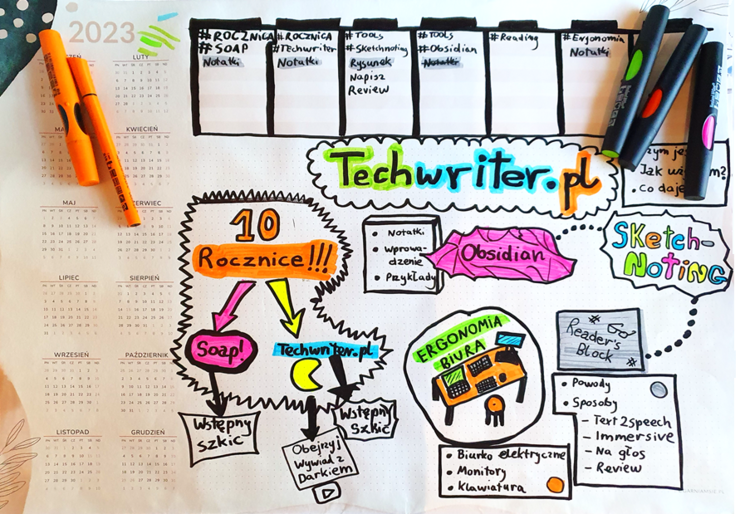 2023
LUTY
KWIECIEŃ
MAJ
CZERWIEC
LIPIEC
SIERPIEŃ
WRZESIEŃ
PAŹDZIERNIK
LISTOPAD
GRUDZIEŃ
#ROCZNICA
#SOAP
Notatki
#ROCZNICA
#Techwriter
Notatki
#TOOLS
#Sketchnoting
Rysunek
Napisz
Review
#TOOLS
#Obsidian
Notatki
#Reading
#Ergonomia
Notatki
Techwriter.pl
Jak
• Co daje
10
Rocznice!!!
Soap!
Techwriter.pl
Wstępny
Szkic
Obejrzyj
Wywiad z
Darkiem
Wstępny
Szkic
• Notatki
• Wprowa-
dzenie
• Przykłady
Obsidian
SKetch-
NoTING
ERGONOMIA
BIURA
• Biurko elektryczne
• Monitory
• Klawiatura
Reader's
Block
• Powody
• Sposoby
- Text2speech
- Immersive
- Na głos
- Review